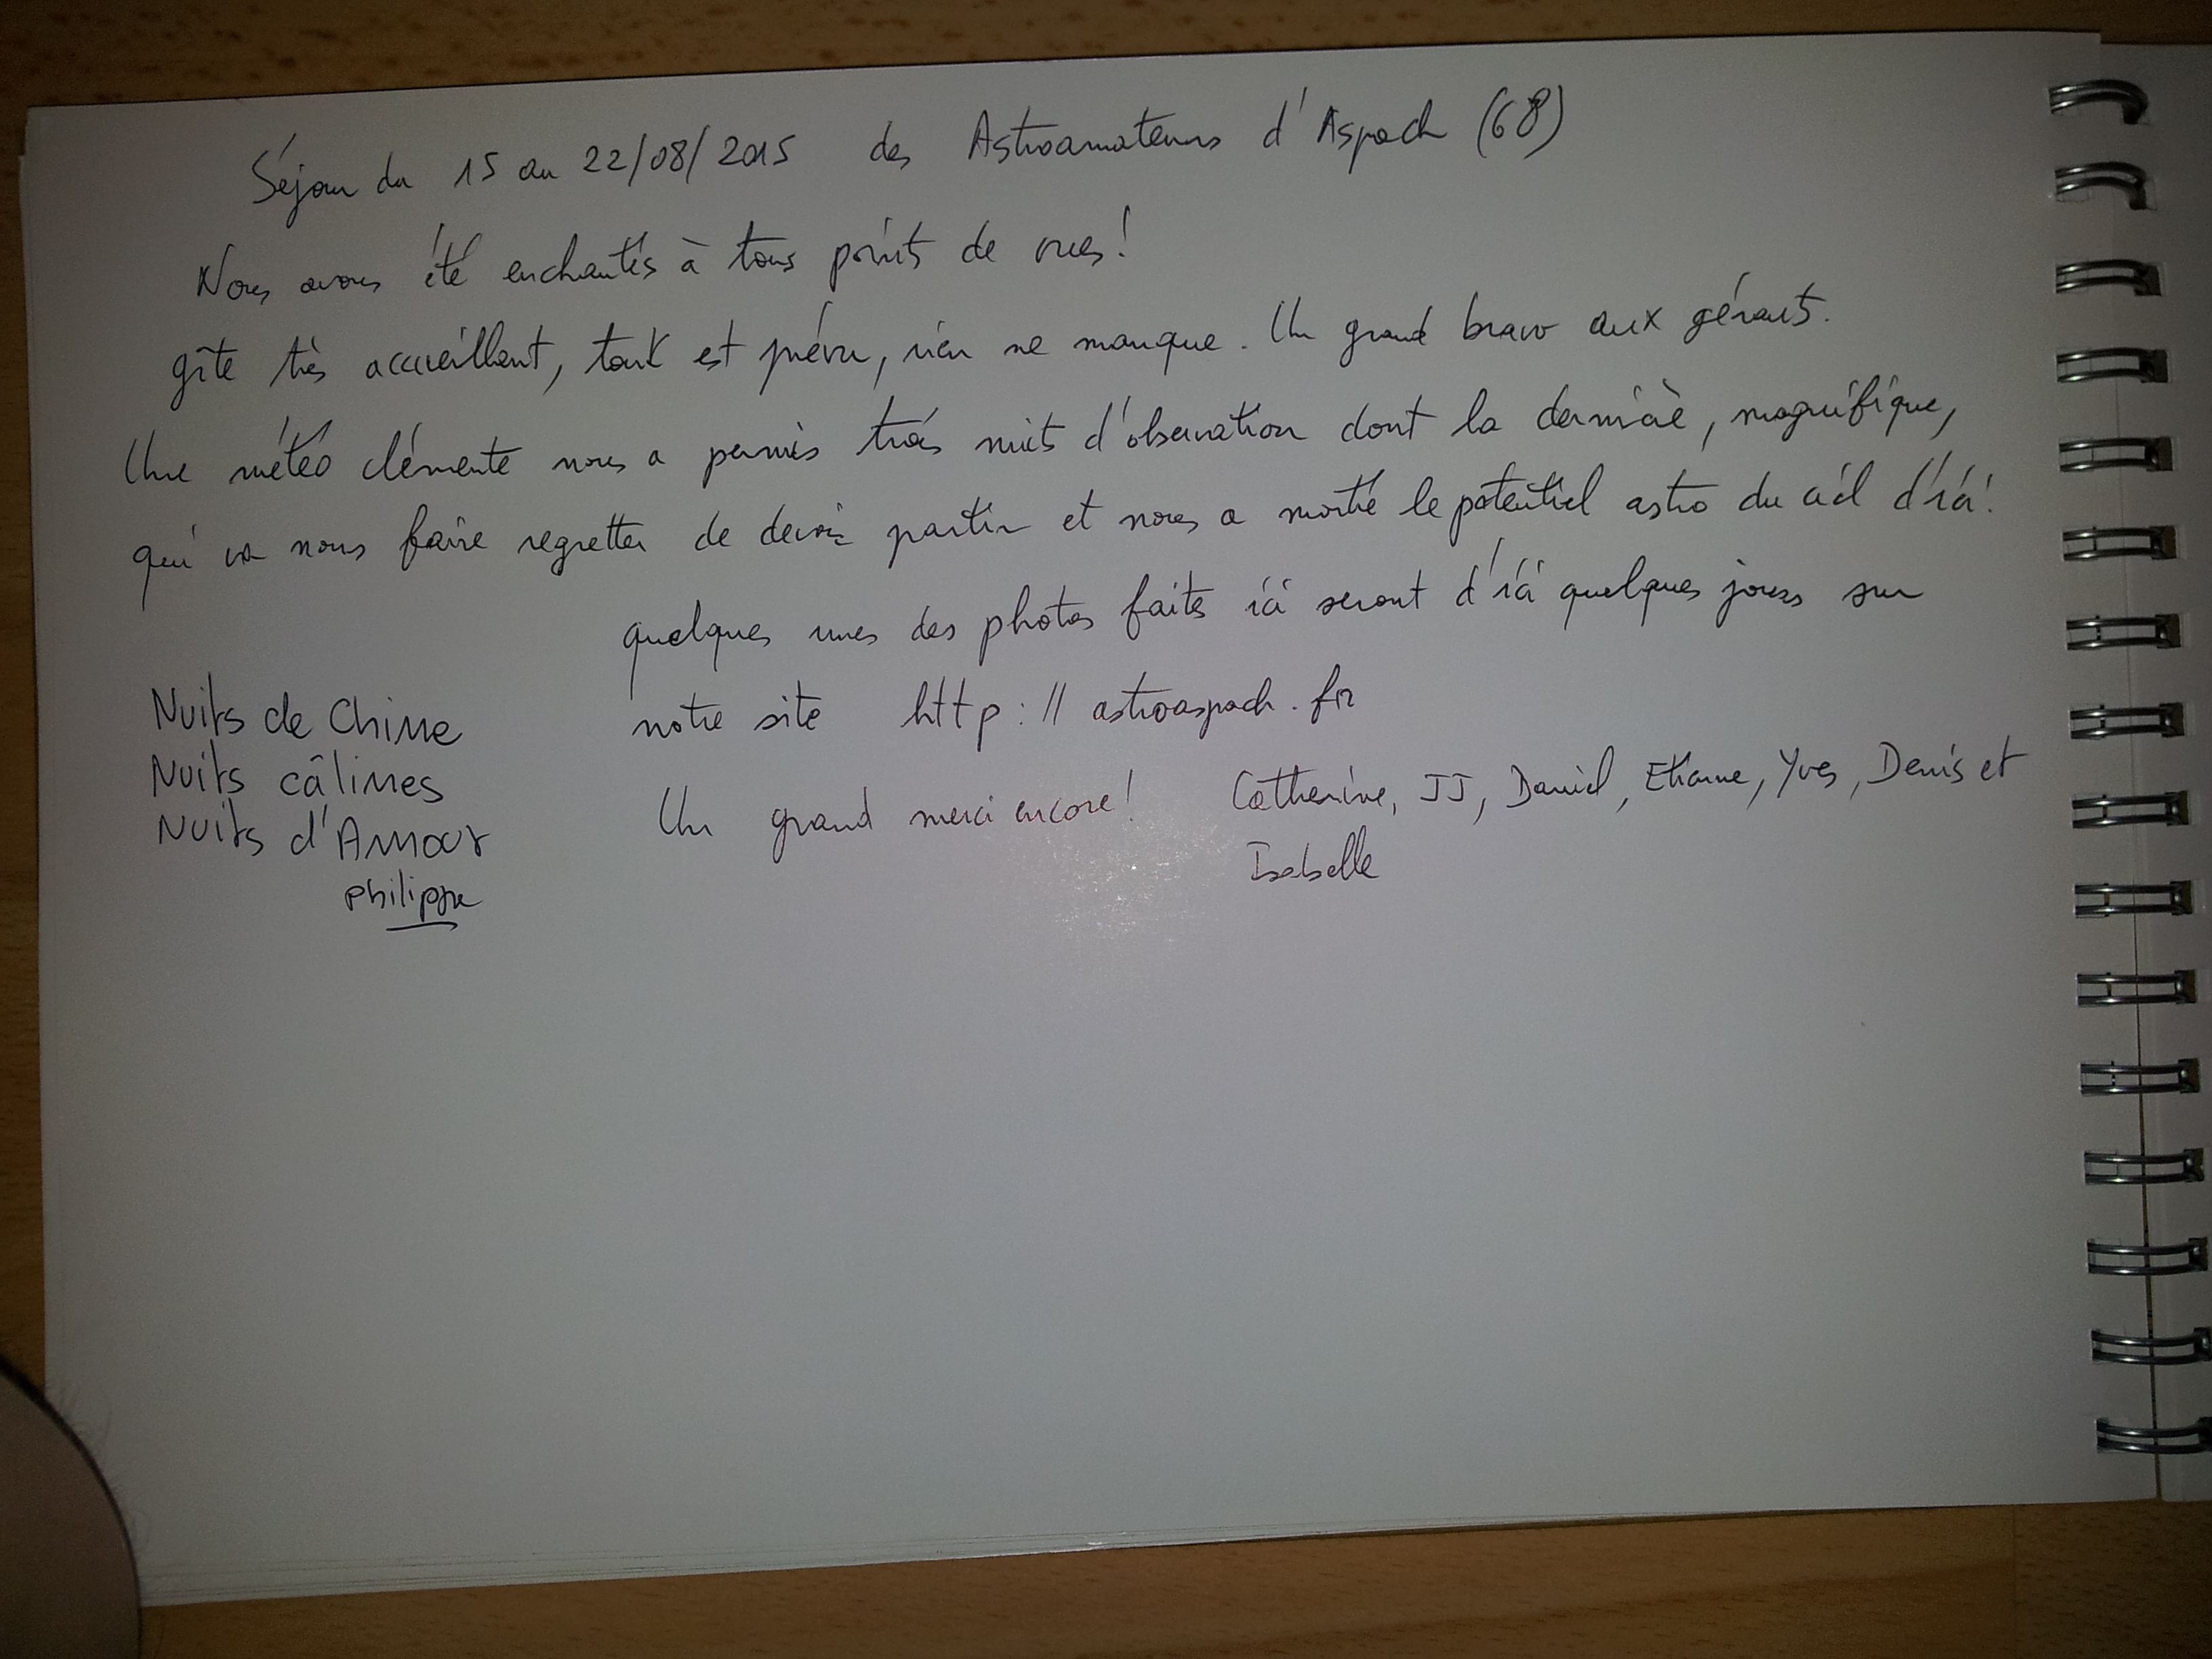 Séjour du 15 au 22/08/2015 des Astroamateurs d'Aspach (68)
Nous avons été enchantés à tous points de vues!
gîte très accueillant, tout est prévu, rien ne manque. Un grand bravo aux gérants.
Une météo clémente nous a permis trois nuits d'observation dont la dernière, magnifique,
qui va nous faire regretter de devoir partir et nous a montré le potentiel astro du ciel d'ici!
quelques unes des photos faites ici seront d'ici quelques jours sur
notre site http://astroaspach.fr
Un grand merci encore! Catherine, JJ, Daniel, Etienne, Yves, Denis et
Isabelle
Nuits de Chine
Nuits câlines
Nuits d'Amour
Philippe